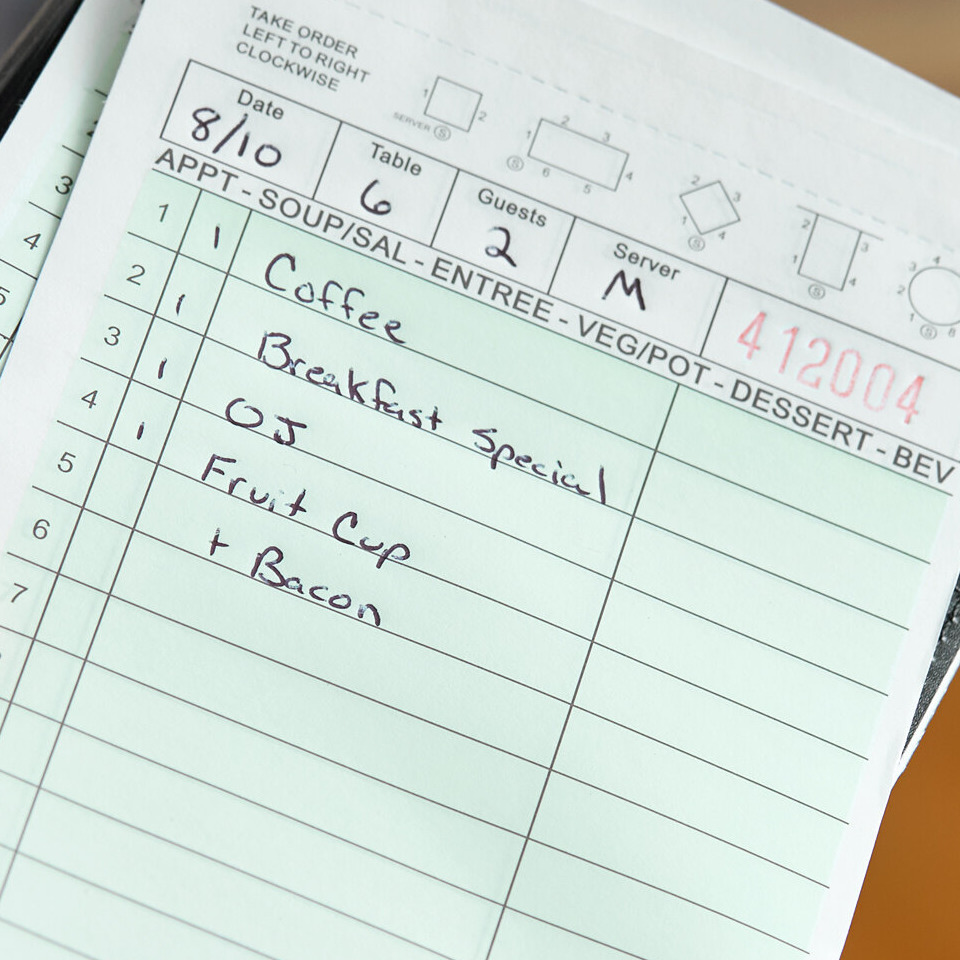 TAKE ORDER
LEFT TO RIGHT
CLOCKWISE
1 2
SERVER S
1 2 3 4 5 6 S
1 2 3 4 S
1 2 3 4 S
1 2 3 4 8 S
Date Table Guests Server
8/10 6 2 M 412004
APPT - SOUP/SAL - ENTREE - VEG/POT - DESSERT - BEV
1 1 Coffee
2 1 Breakfast Special
3 1 OJ
4 1 Fruit Cup
5 + Bacon
6
7
3
4
5